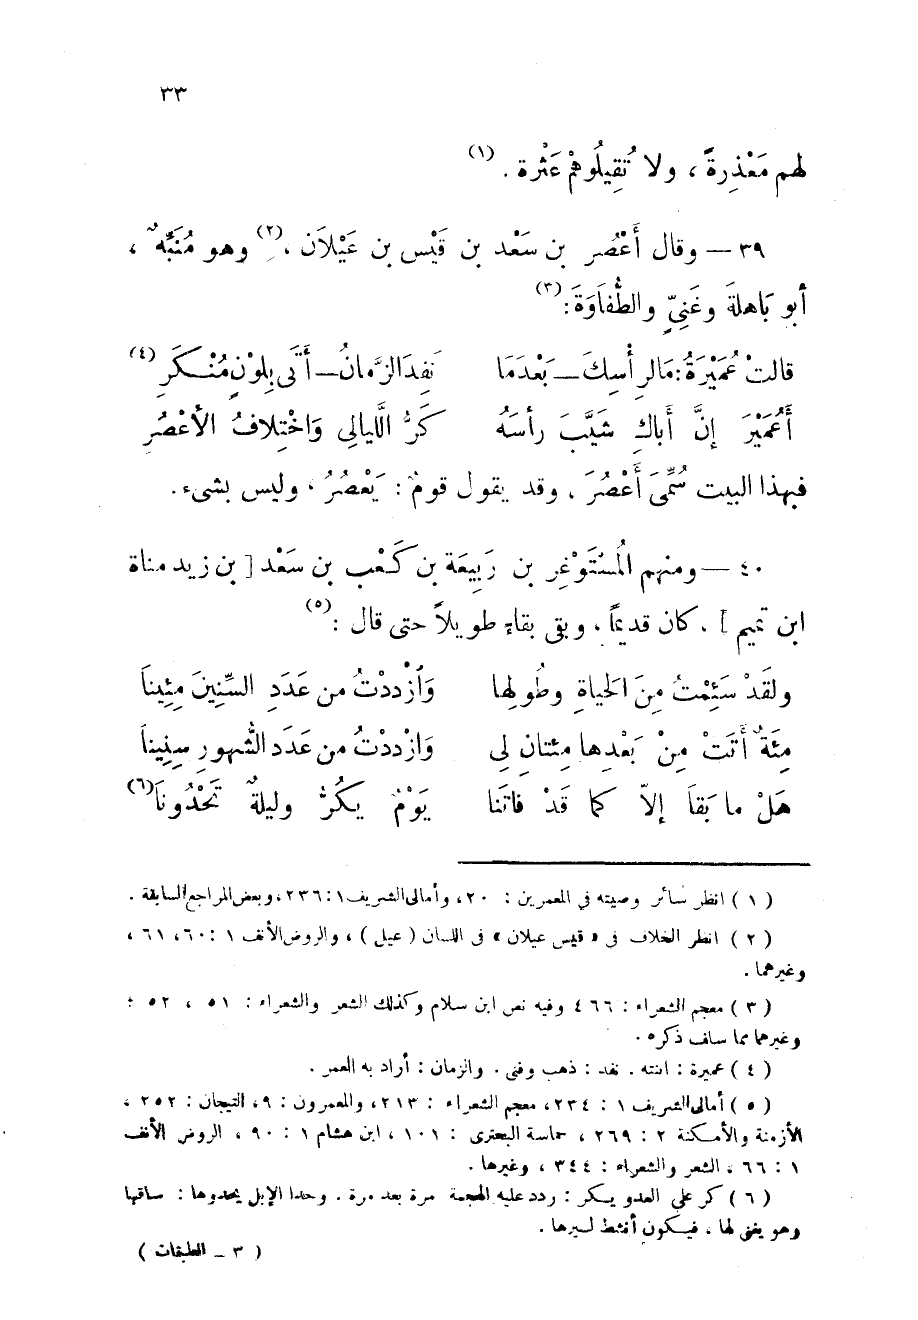 ٣٣
لهم مَعْذِرةً ، ولا تُقِيلُوهُمْ عَثْرة . (١)
٣٩ — وقال أَعْصُر بن سَعْد بن قَيْس بن عَيْلاَن ، (٢) وهو مُنَبِّهٌ ،
أبو بَاهلةَ وغَنِيٍّ والطُّفَاوَةَ : (٣)
قالتْ عُمَيْرَةُ : مَالِرأْسِكَ — بَعْدَمَا نَفِدَ الزَّمانُ — أَتَى بِلوْنٍ مُنْكَرِ (٤)
أَعُمَيْرَ إنَّ أَباكِ شَيَّبَ رأسَهُ كَرُّ اللَّيالِى وَاخْتِلافُ الأَعْصُرِ
فبهذا البيت سُمِّىَ أَعْصُرَ . وقد يقول قومٌ : يَعْصُرُ ، وليس بشىء .
٤٠ — ومنهم المُسْتَوْغِر بن رَبِيعَة بن كَعْب بن سَعْد [ بن زيد مناة
ابن تميم ] . كان قديمًا ، وبقى بقاءً طويلاً حتى قال : (٥)
ولقَدْ سَئِمْتُ مِنَ الحَياةِ وطُولِها وَٱزْددْتُ من عَدَدِ السِّنِينَ مِئِيناَ
مِئَةٌ أَتَتْ مِنْ بَعْدِها مِئتانِ لِى وَازْددْتُ من عَدَد الشُّهورِ سِنِيناَ
هَلْ ما بَقاَ إلاّ كما قَدْ فاتَنا يَوْمٌ يكُرُّ وليلةٌ تَحْدُوناَ (٦)
( ١ ) انظر سائر وصيته في المعمرين : ٢٠ ، وأمالى الشريف ١ : ٢٣٦ ، وبعض المراجع السابقة .
( ٢ ) انظر الخلاف فى « قيس عيلان » فى اللسان ( عيل ) ، والروض الأنف ١ : ٦٠ ، ٦١ ،
وغيرهما .
( ٣ ) معجم الشعراء : ٤٦٦ وفيه نص ابن سلام وكذلك الشعر والشعراء : ٥١ ، ٥٢ ؛
وغيرهما مما سلف ذكره .
( ٤ ) عميرة : ابنته . نفد : ذهب وفنى . والزمان : أراد به العمر .
( ٥ ) أمالى الشريف ١ : ٢٣٤ ، معجم الشعراء : ٢١٣ ، والمعمرون : ٩ ، التيجان : ٢٥٢ ،
الأزمنة والأمكنة ٢ : ٢٦٩ ، حماسة البحترى : ١٠١ ، ابن هشام ١ : ٩٠ ، الروض الأنف
١ : ٦٦ ، الشعر والشعراء : ٣٤٤ ، وغيرها .
( ٦ ) كر على العدو يكر : ردد عليه الهجمة مرة بعد مرة . وحدا الإبل يحدوها : ساقها
وهو يغنى لها ، فيكون أنشط لسيرها .
( ٣ — الطبقات )